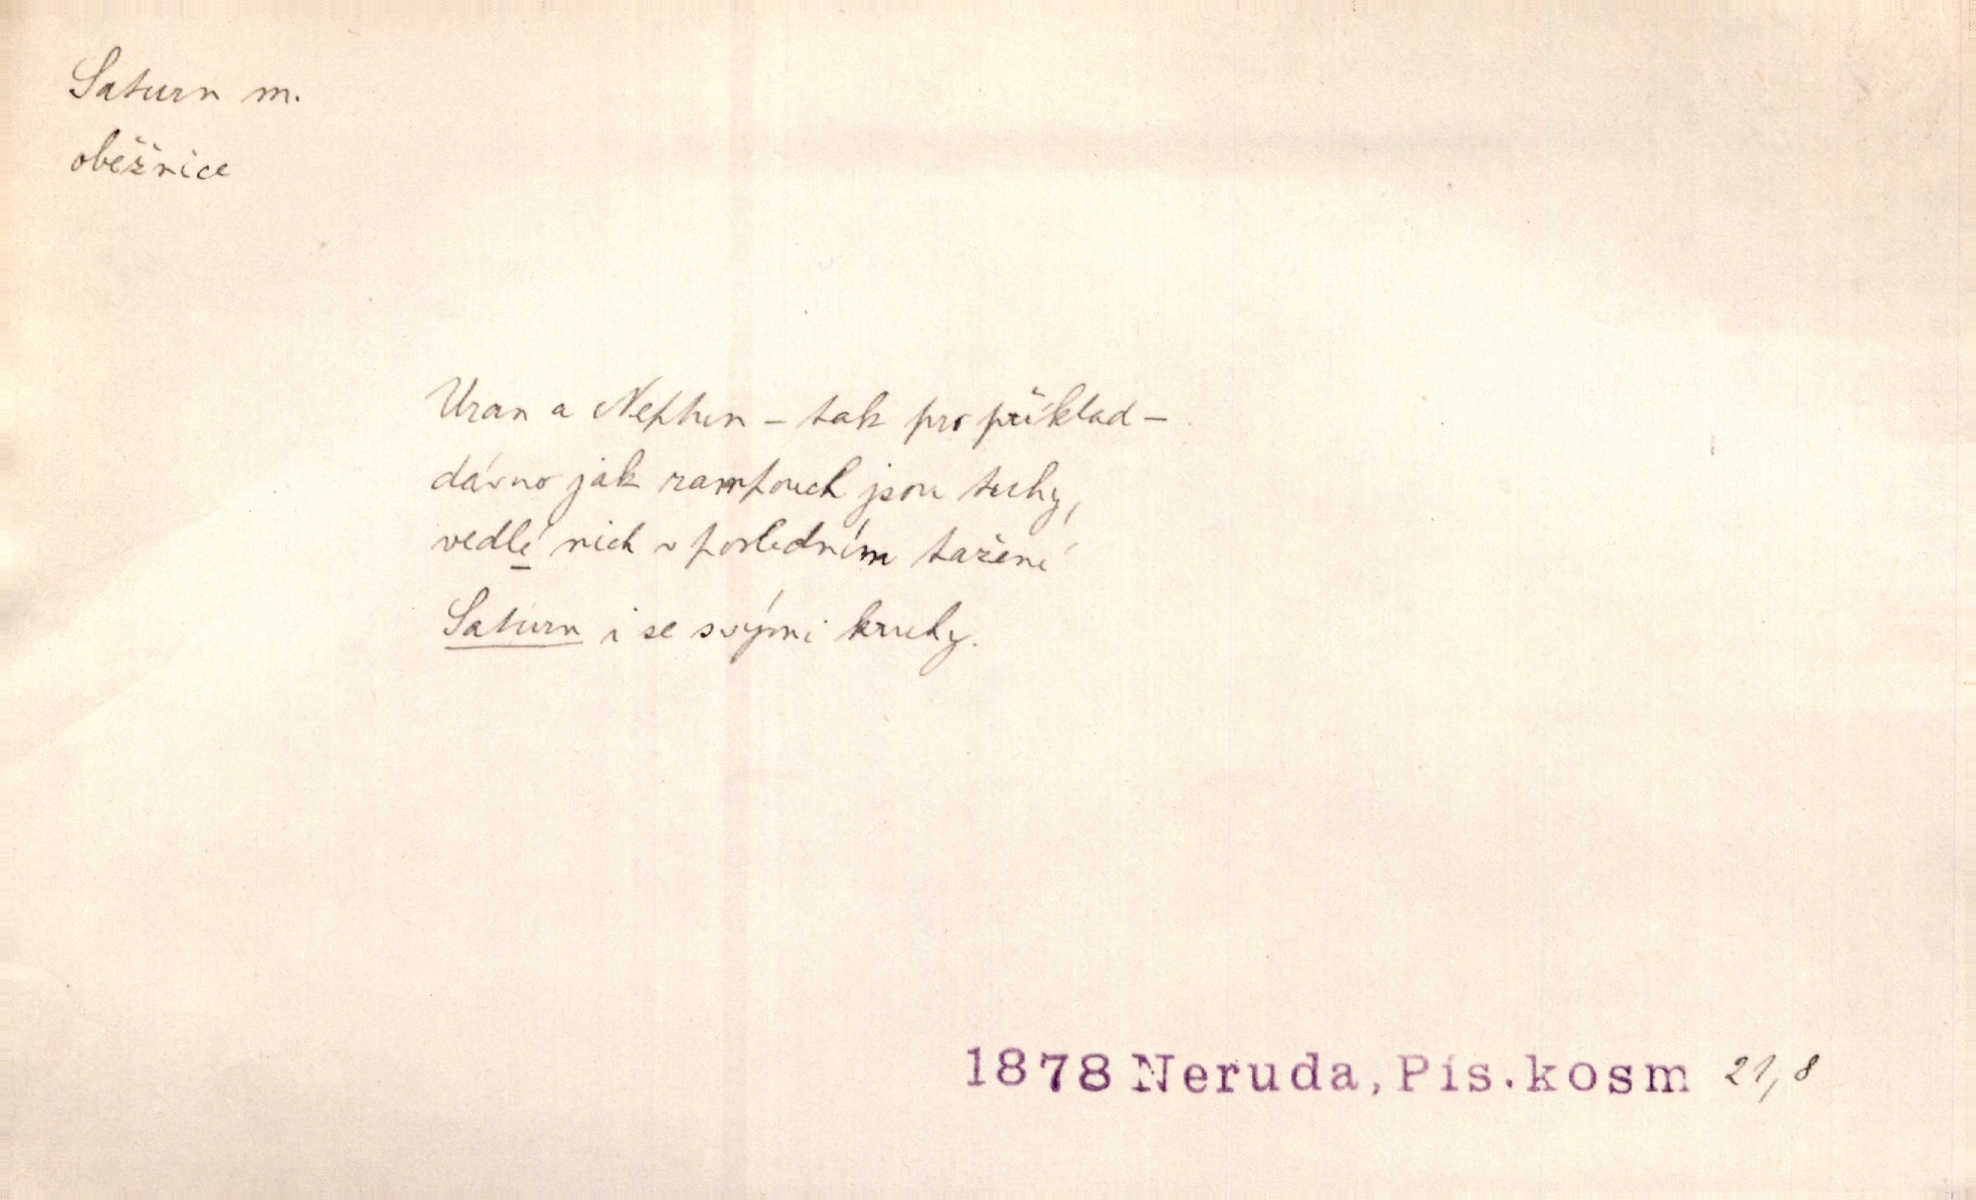 Saturn m.
oběžnice
Uran a Neptun – tak pro příklad –
dávno jak rampouch jsou tuhy,
vedlé nich v posledním tažení
Saturn i se svými kruhy.
1878 Neruda, Pís. kosm 21,8